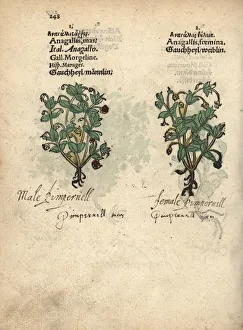 248
1.
Anagallis, mas.
Ital. Anagallo.
Gall. Morgeline.
Hisp. Muruges.
Gauchheyl/ männlin.
2.
Anagallis, fœmina.
Gauchheyl/ weiblin.
Male pimpernell
Pimpernill
female pimpernell
Pimpernill